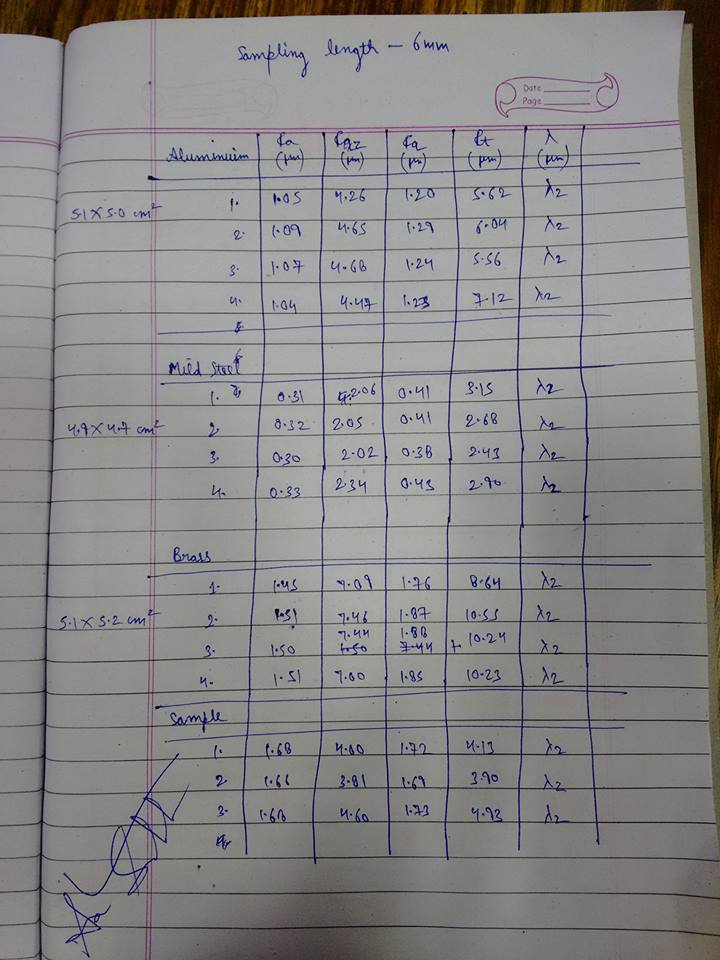 Sampling length - 6mm
Date
Page
Aluminium Ra (µm) Rz (µm) Rq (µm) Rt (µm) λ (µm)
5.1 X 5.0 cm²
1. 1.05 4.26 1.20 5.62 λ2
2. 1.09 4.65 1.29 6.04 λ2
3. 1.07 4.68 1.24 5.56 λ2
4. 1.04 4.47 1.23 7.12 λ2
Mild Steel
1. 0.31 2.06 0.41 3.15 λ2
4.7 X 4.7 cm² 2. 0.32 2.05 0.41 2.68 λ2
3. 0.30 2.02 0.38 2.43 λ2
4. 0.33 2.34 0.43 2.90 λ2
Brass
1. 1.45 7.09 1.76 8.64 λ2
5.1 X 5.2 cm² 2. 1.51 7.46 1.87 10.55 λ2
3. 1.50 7.44 1.88 10.24 λ2
4. 1.51 7.00 1.85 10.23 λ2
Sample
1. 1.68 4.00 1.72 4.13 λ2
2. 1.66 3.81 1.69 3.90 λ2
3. 1.68 4.60 1.73 4.93 λ2